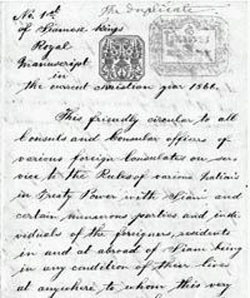 The duplicate
No. 1st
of Siamese Kings
Royal
manuscript
in
the current christian year 1866.
This friendly circular to all
Consuls and Consular officers of
various foreign Consulates on ser-
vice to the Rules of various Natiais
in Treaty Power with Siam and
certain numerous parties and ind-
viduals of the foreigners, residents
in and at abroad of Siam being
in any condition of their lives
at anywhere to whom this very